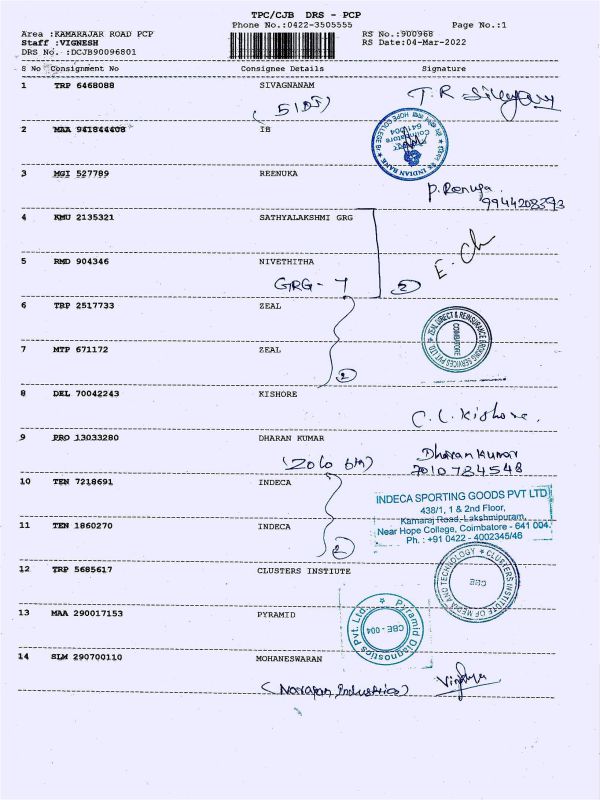 TPC/CJB DRS - PCP
Phone No.:0422-3505555
Page No.:1
Area :KAMARAJAR ROAD PCP
RS No.:900968
Staff :VIGNESH
RS Date:04-Mar-2022
DRS No. :DCJB90096801
S No Consignment No Consignee Details Signature
1 TRP 6468088 SIVAGNANAM
T. R
2 MAA 941844408 IB
INDIAN BANK
HOPE COLLEGE
Coimbatore
641 004
3 MGI 527789 REENUKA
P. Reenuga.
9944208393
4 KMU 2135321 SATHYALAKSHMI GRG
5 RMD 904346 NIVETHITHA
GRG - 7
2
6 TRP 2517733 ZEAL
ZEAL DIRECT & REINSURANCE BROKING SERVICES PVT LTD.
COIMBATORE
7 MTP 671172 ZEAL
2
8 DEL 70042243 KISHORE
C. L. Kishore.
9 PRO 13033280 DHARAN KUMAR
(Zolo
Dharan Kumar
7010784548
10 TEN 7218691 INDECA
INDECA SPORTING GOODS PVT LTD
438/1, 1 & 2nd Floor,
Kamaraj Road, Lakshmipuram,
Near Hope College, Coimbatore - 641 004.
Ph. : +91 0422 - 4002345/46
11 TEN 1860270 INDECA
2
12 TRP 5685617 CLUSTERS INSTIUTE
CLUSTERS INSTITUTE OF MEDIA AND TECHNOLOGY
CBE
13 MAA 290017153 PYRAMID
Pyramid Diagnostics Pvt. Ltd.
CBE - 004
14 SLM 290700110 MOHANESWARAN
(Narayan Industries)